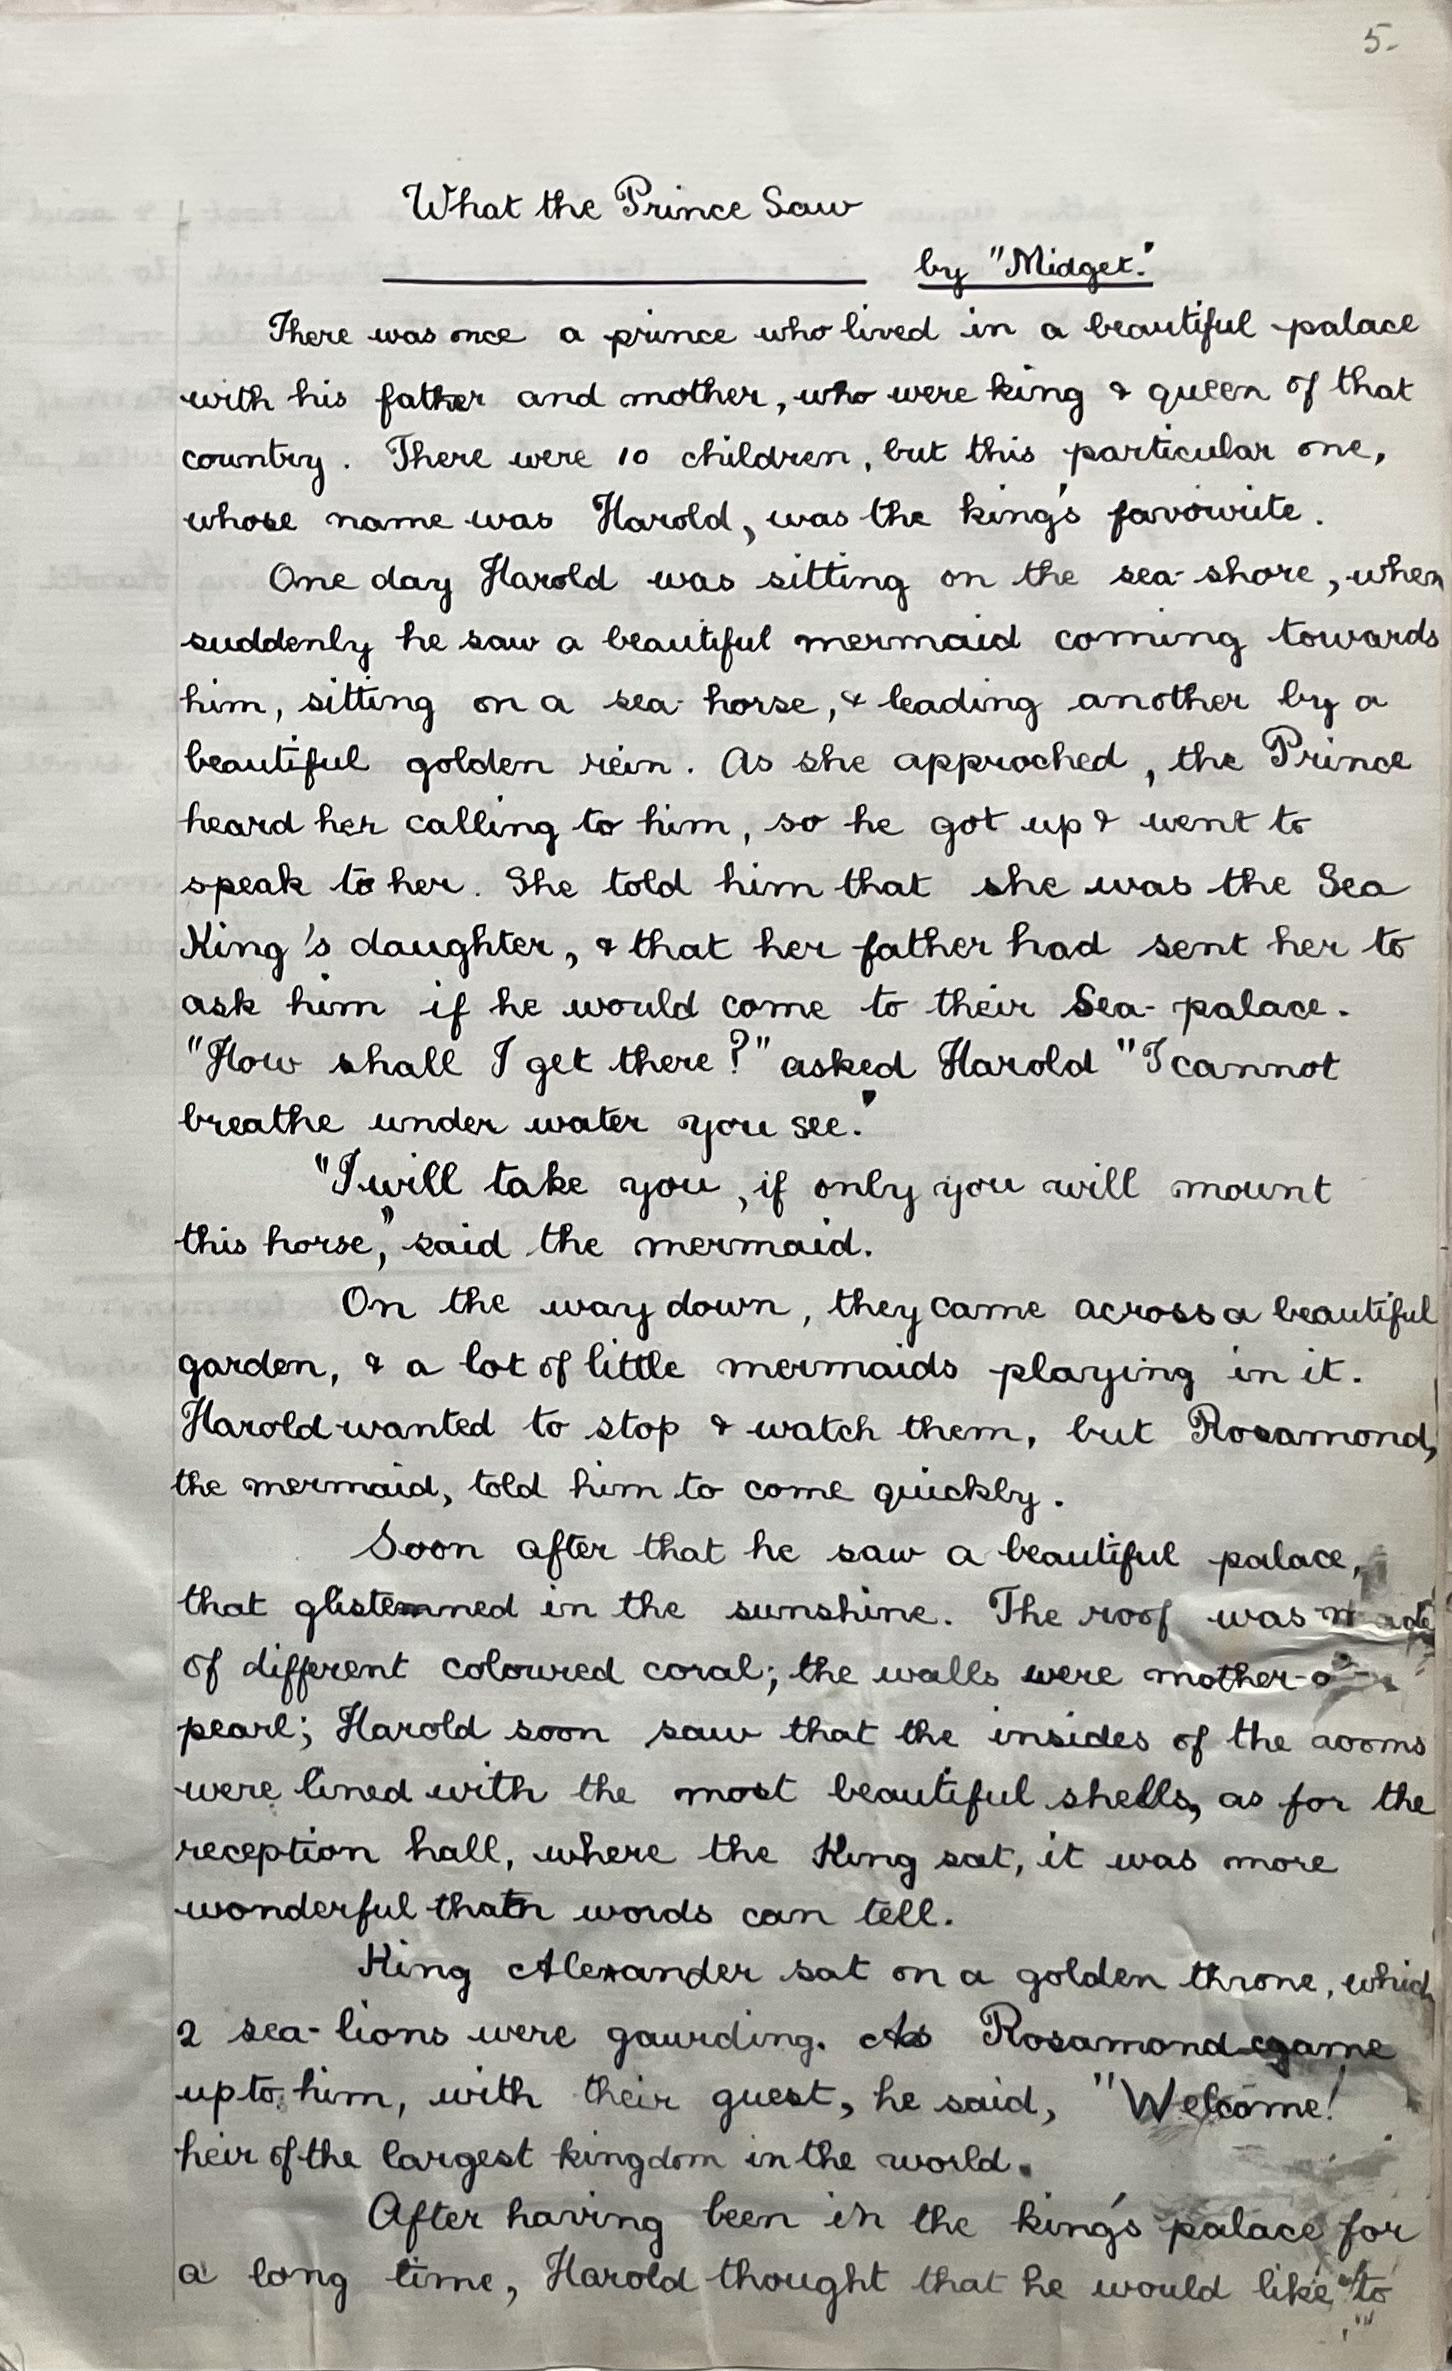 5.
What the Prince Saw
by "Midget."
There was once a prince who lived in a beautiful palace
with his father and mother, who were king & queen of that
country. There were 10 children, but this particular one,
whose name was Harold, was the king's favourite.
One day Harold was sitting on the sea-shore, when
suddenly he saw a beautiful mermaid coming towards
him, sitting on a sea-horse, & leading another by a
beautiful golden rein. As she approched, the Prince
heard her calling to him, so he got up & went to
speak to her. She told him that she was the Sea
King's daughter, & that her father had sent her to
ask him if he would come to their Sea-palace.
"How shall I get there?" asked Harold "I cannot
breathe under water you see."
"I will take you, if only you will mount
this horse," said the mermaid.
On the way down, they came across a beautiful
garden, & a lot of little mermaids playing in it.
Harold wanted to stop & watch them, but Rosamond,
the mermaid, told him to come quickly.
Soon after that he saw a beautiful palace,
that glistenned in the sunshine. The roof was made
of different coloured coral; the walls were mother-o'-
pearl; Harold soon saw that the insides of the rooms
were lined with the most beautiful shells, as for the
reception hall, where the King sat, it was more
wonderful than words can tell.
King Alexander sat on a golden throne, which
2 sea-lions were gaurding. As Rosamond came
up to him, with their guest, he said, "Welcome!
heir of the largest kingdom in the world.
After having been in the king's palace for
a long time, Harold thought that he would like to